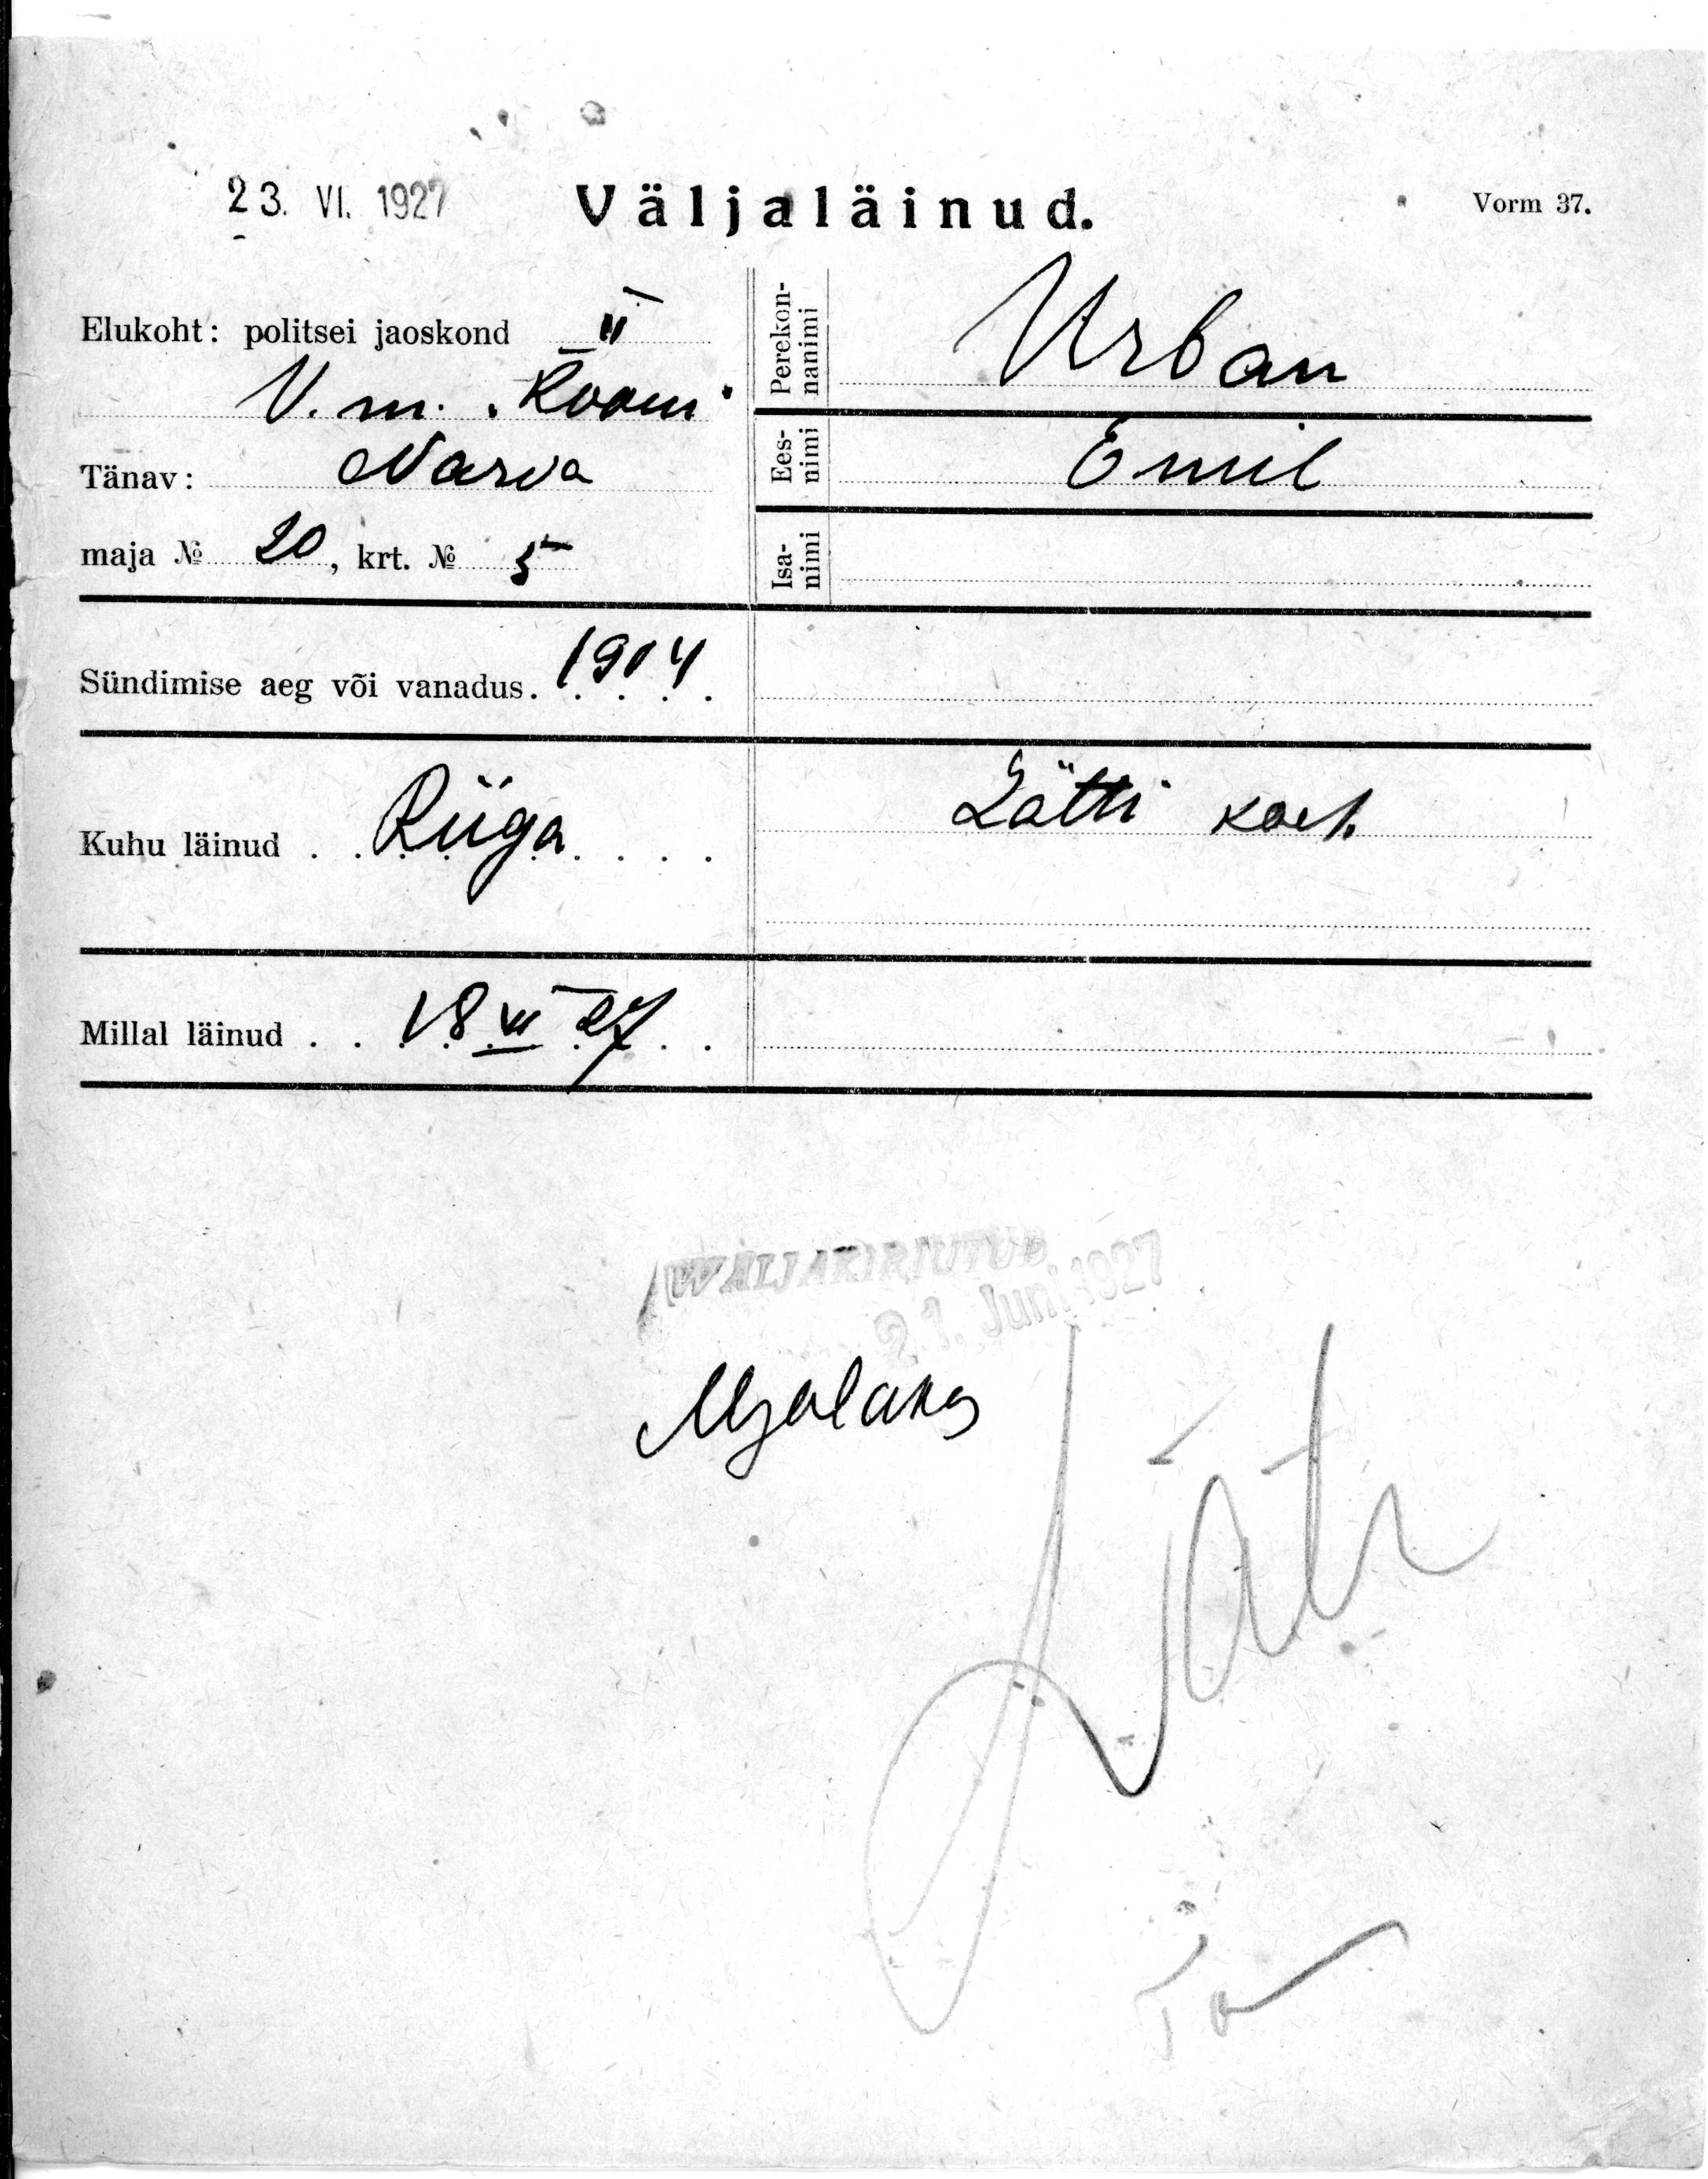 23. VI. 1927 Väljaläinud. Vorm 37.
Elukoht: politsei jaoskond II
V. m. „Rööm“
Tänav: Narva
maja № 20, krt. № 5
Perekon-
nanimi Urban
Ees-
nimi Emil
Isa-
nimi
Sündimise aeg või vanadus. 1904
Kuhu läinud Riiga
Lätti kod.
Millal läinud 18 VI 27
WÄLJAKIRJUTUD
21. Juni 1927
Läti